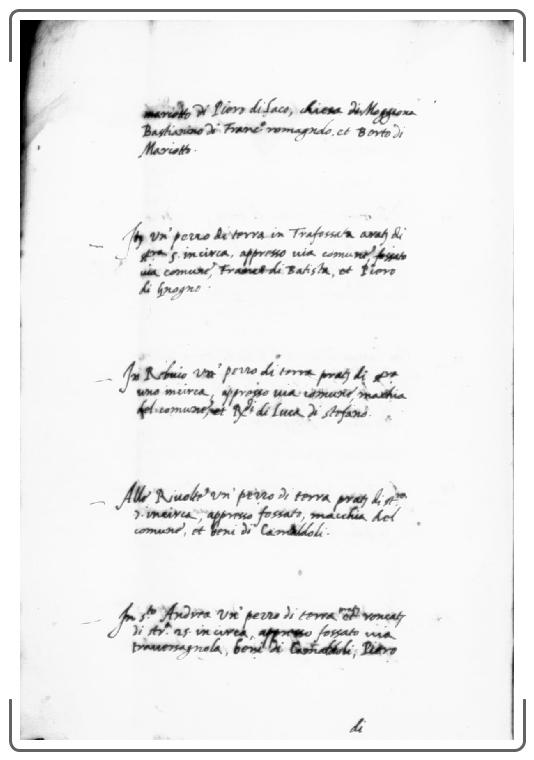 mariotto di Piero di Laco, chiesa di Moggiona
Bastianino di Franc.º romagnolo. et Berto di
Mariotto.
Un' pezzo di terra in Trafossata arat.j di
5. in circa, appresso via comune, fossato
via comune, di Batista, et Piero
di Gnogne.
In Rebuio Un' pezzo di terra prat.j di
uno incirca, appresso via comune, macchia
del comune, et R.di di Luca di stefano.
Alle Rivolte un' pezzo di terra prat.j di
incirca, appresso fossato, macchia del
comune, et beni di Camaldoli.
In S.to Andrea Un' pezzo di terra et roncat.j
di str.ª 25. in circa, appresso fossato via
traversagnola, beni di Camaldoli, Piero
di